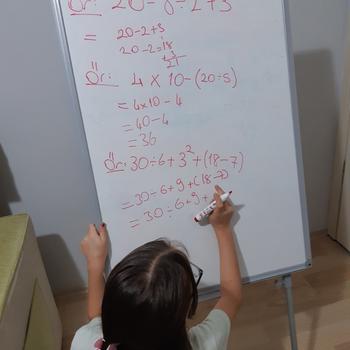 Ör: 20-8÷2+3
= 20-2+3
20-2=18
+3
21
Ör: 4 × 10-(20÷5)
= 4×10 - 4
= 40-4
= 36
Ör: 30÷6+3²+(18-7)
= 30÷6+9+(18-7)
= 30÷6+9+